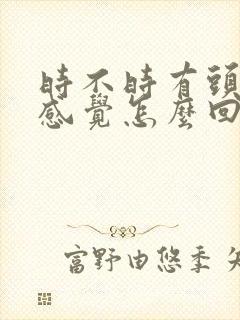 時不時有頭
感覺怎麼回
富野由悠季